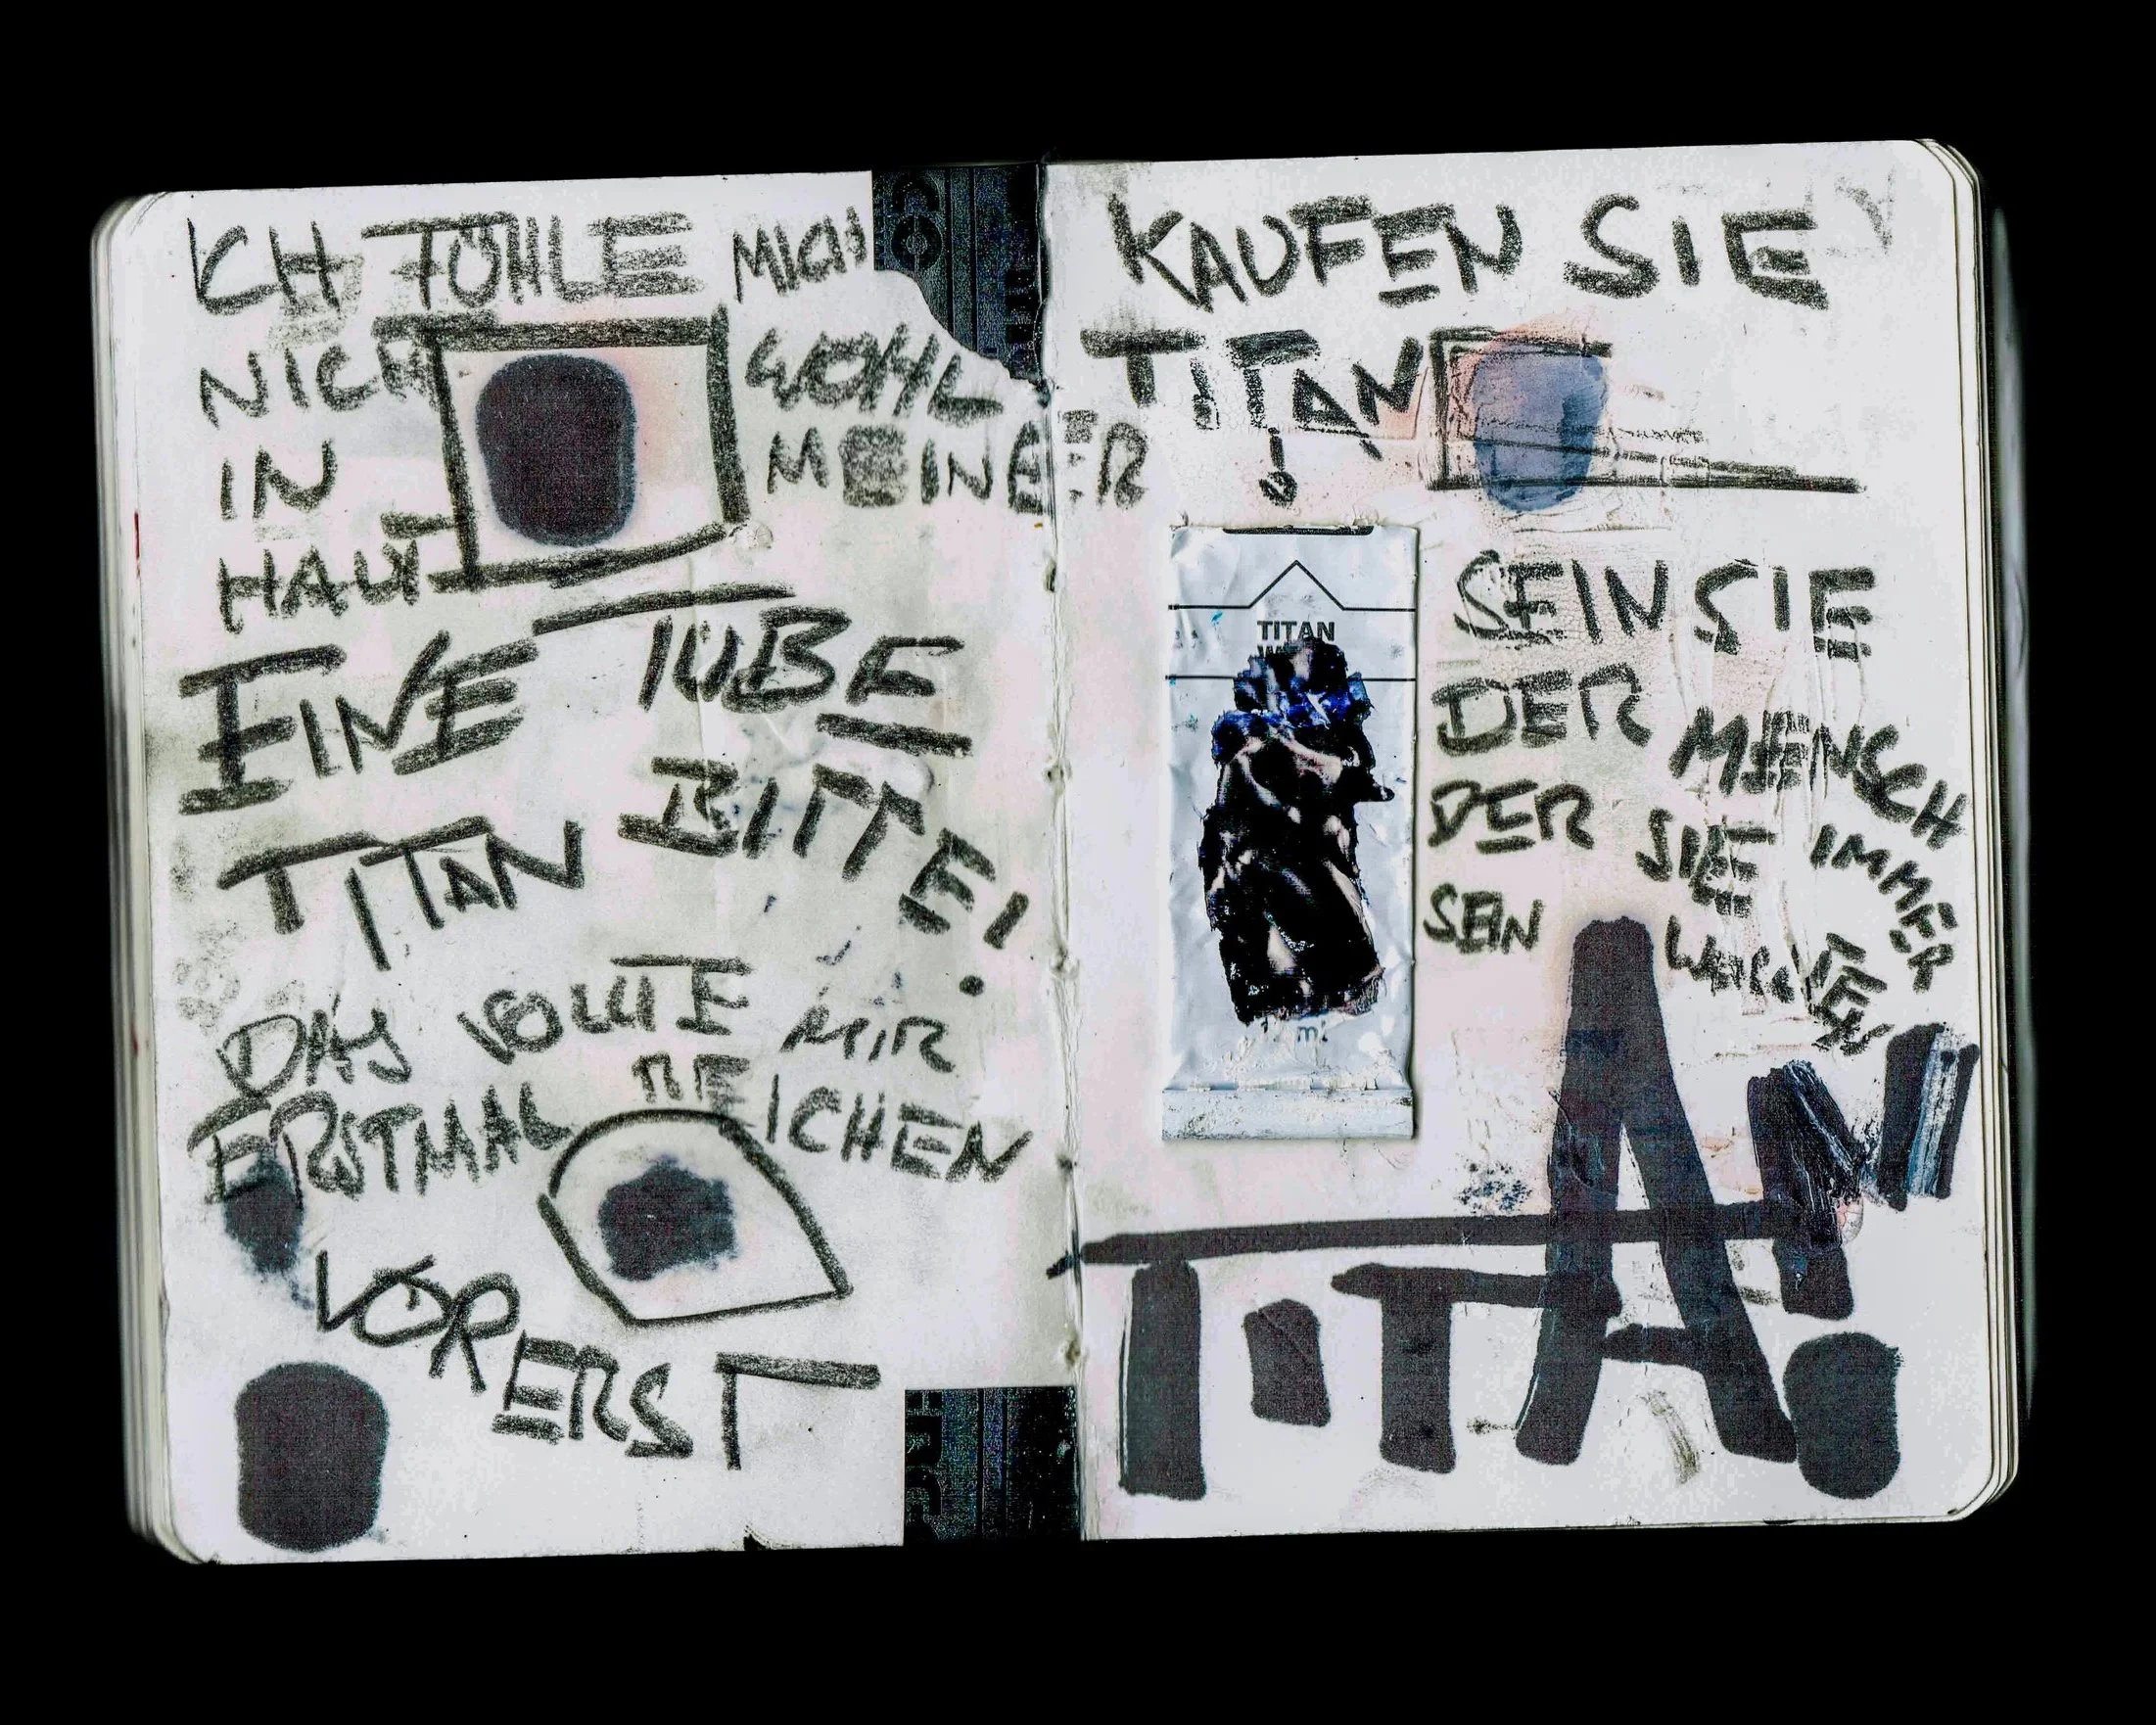 ICH FÜHLE MICH
NICH WOHL
IN MEINER
HAUT
EINE TUBE
TITAN BITTE!
DAS SOLLTE MIR
ERSTMAL REICHEN
VORERST
KAUFEN SIE
TITAN
!
TITAN
SEIN SIE
DER MENSCH
DER SIE IMMER
SEIN WOLLTEN
TITAN!